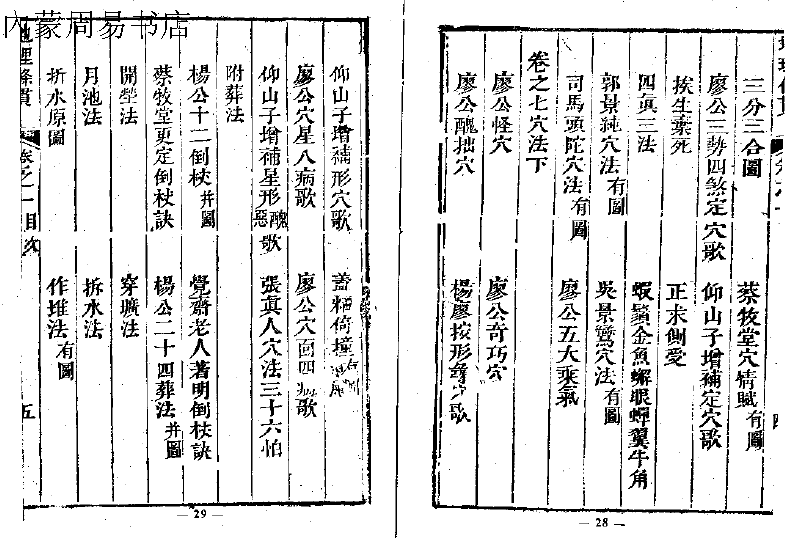 內蒙周易书店
三分三合圖
蔡牧堂穴情賦有圖
廖公三勢四煞定穴歌
仰山子增補定穴歌
挨生棄死
正求側受
四真三法
蝦鬚金魚蠏眼蟬翼牛角
郭景純穴法有圖
吳景鸞穴法有圖
司馬頭陀穴法有圖
廖公五大乘氣
卷之七穴法下
廖公怪穴
廖公奇巧穴
廖公醜拙穴
楊廖按形尋穴歌
四
— 28 —
仰山子增補形穴歌
蓋粘倚撞
廖公穴星八病歌
廖公穴面四病歌
仰山子增補星形醜惡歌
張真人穴法三十六怕
附葬法
楊公十二倒杖并圖
覺齋老人著明倒杖訣
蔡牧堂更定倒杖訣
楊公二十四葬法并圖
開塋法
穿壙法
月池法
拆水法
折水原圖
作堆法有圖
地理條貫
卷之一目次
五
— 29 —